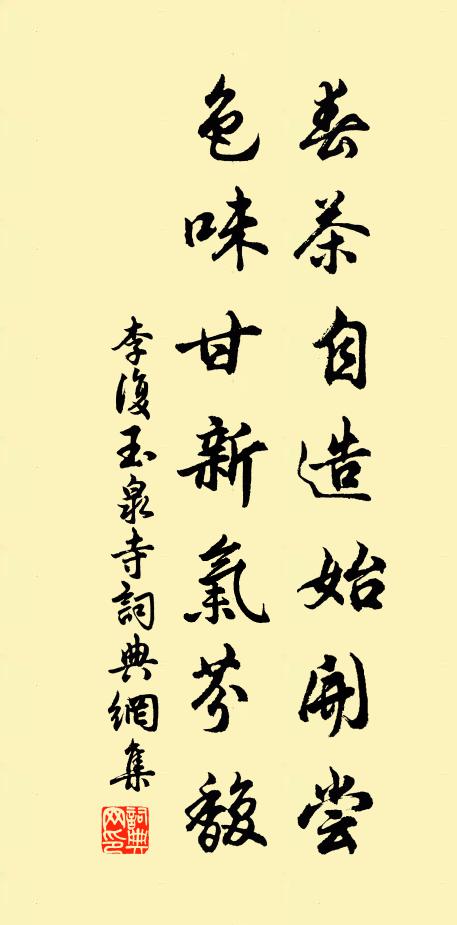 春茶自造始開嘗
色味甘新氣芬馥
李復玉泉寺詞典網集
詞典網印